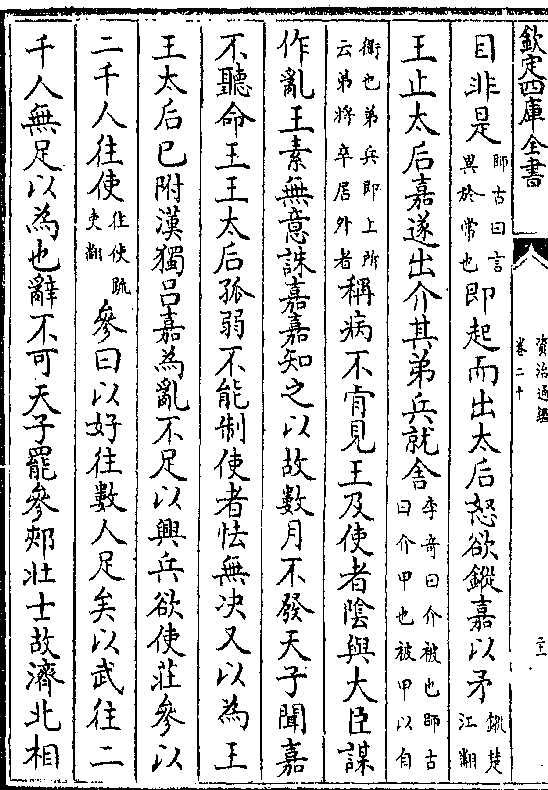 欽定四庫全書
資治通鑑
卷二十
目非是師古曰言異於常也即起而出太后怒欲鏦嘉以矛鏦楚江翻
王止太后嘉遂出介其弟兵就舍李奇曰介被也師古曰介甲也被甲以自
衛也弟兵即上所云弟將卒居外者稱病不肯見王及使者陰與大臣謀
作亂王素無意誅嘉嘉知之以故數月不發天子聞嘉
不聽命王王太后孤弱不能制使者怯無决又以為王
王太后已附漢獨呂嘉為亂不足以興兵欲使莊參以
二千人往使往使疏吏翻參曰以好往數人足矣以武往二
千人無足以為也辭不可天子罷參郟壯士故濟北相